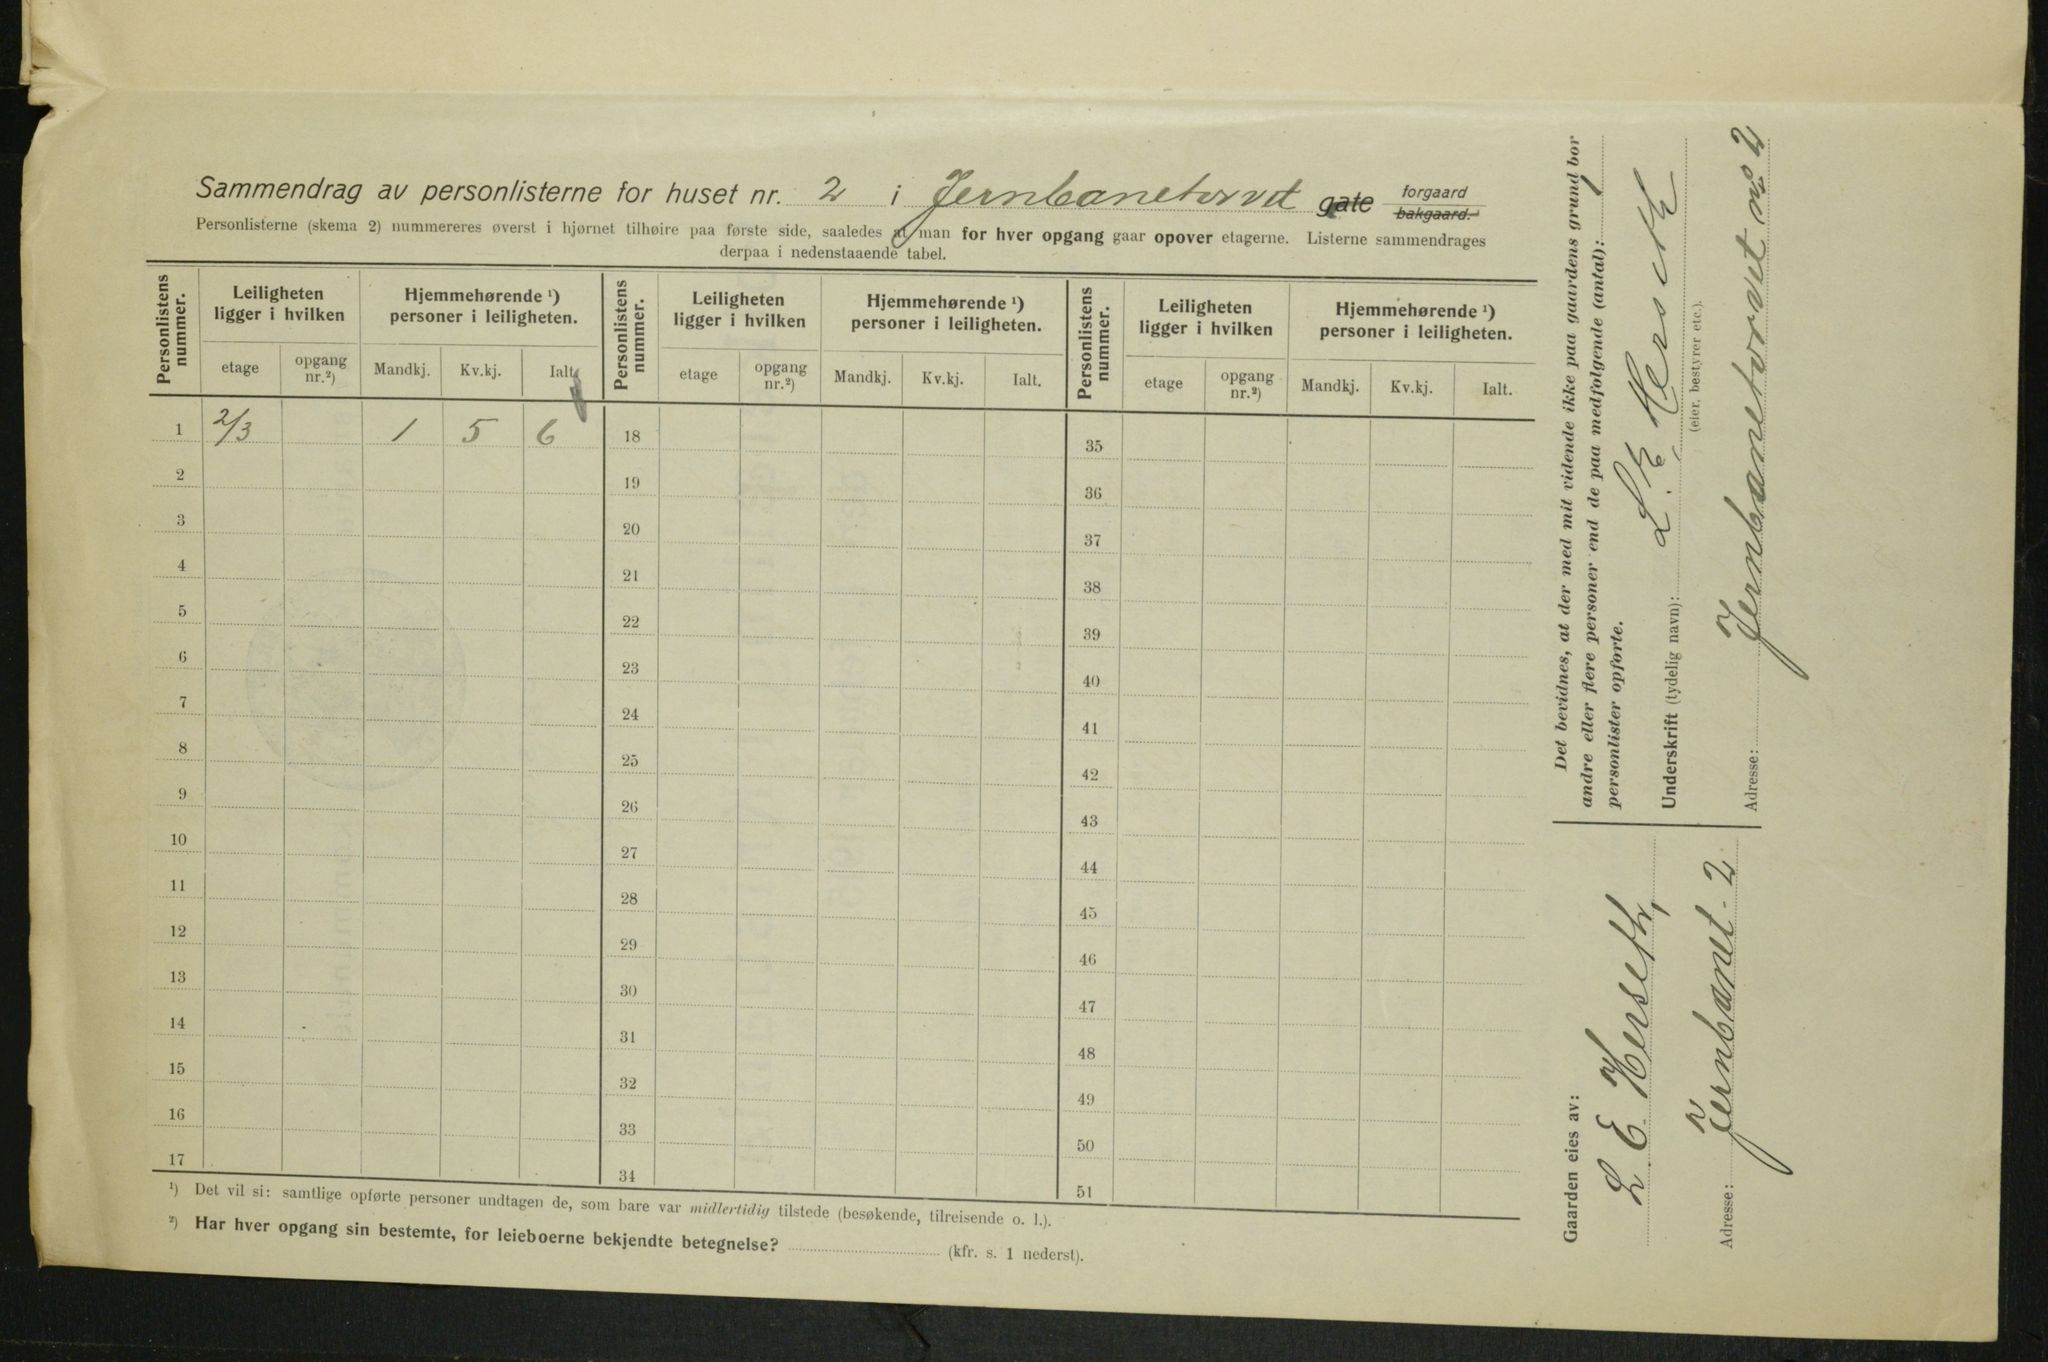 Sammendrag av personlisterne for huset nr. 2 i Jernbanetorvet gate forgaard bakgaard.
Personlisterne (skema 2) nummereres øverst i hjørnet tilhøire paa første side, saaledes at man for hver opgang gaar opover etagerne. Listerne sammendrages
derpaa i nedenstaaende tabel.
Personlistens nummer. Leiligheten ligger i hvilken Hjemmehørende ¹) personer i leiligheten. Personlistens nummer. Leiligheten ligger i hvilken Hjemmehørende ¹) personer i leiligheten. Personlistens nummer. Leiligheten ligger i hvilken Hjemmehørende ¹) personer i leiligheten.
etage opgang nr.²) Mandkj. Kv.kj. Ialt. etage opgang nr.²) Mandkj. Kv.kj. Ialt. etage opgang nr.²) Mandkj. Kv.kj. Ialt.
1 2/3 1 5 6 18 35
2 19 36
3 20 37
4 21 38
5 22 39
6 23 40
7 24 41
8 25 42
9 26 43
10 27 44
11 28 45
12 29 46
13 30 47
14 31 48
15 32 49
16 33 50
17 34 51
¹) Det vil si: samtlige opførte personer undtagen de, som bare var midlertidig tilstede (besøkende, tilreisende o. l.).
²) Har hver opgang sin bestemte, for leieboerne bekjendte betegnelse? (kfr. s. 1 nederst).
Det bevidnes, at der med mit vidende ikke paa gaardens grund bor
andre eller flere personer end de paa medfølgende (antal): 1
personlister opførte.
Underskrift (tydelig navn): L. E. Herseth
(eier, bestyrer etc.).
Adresse: Jernbanetorvet no 2
Gaarden eies av:
L. E. Herseth,
Adresse: Jernbanet. 2